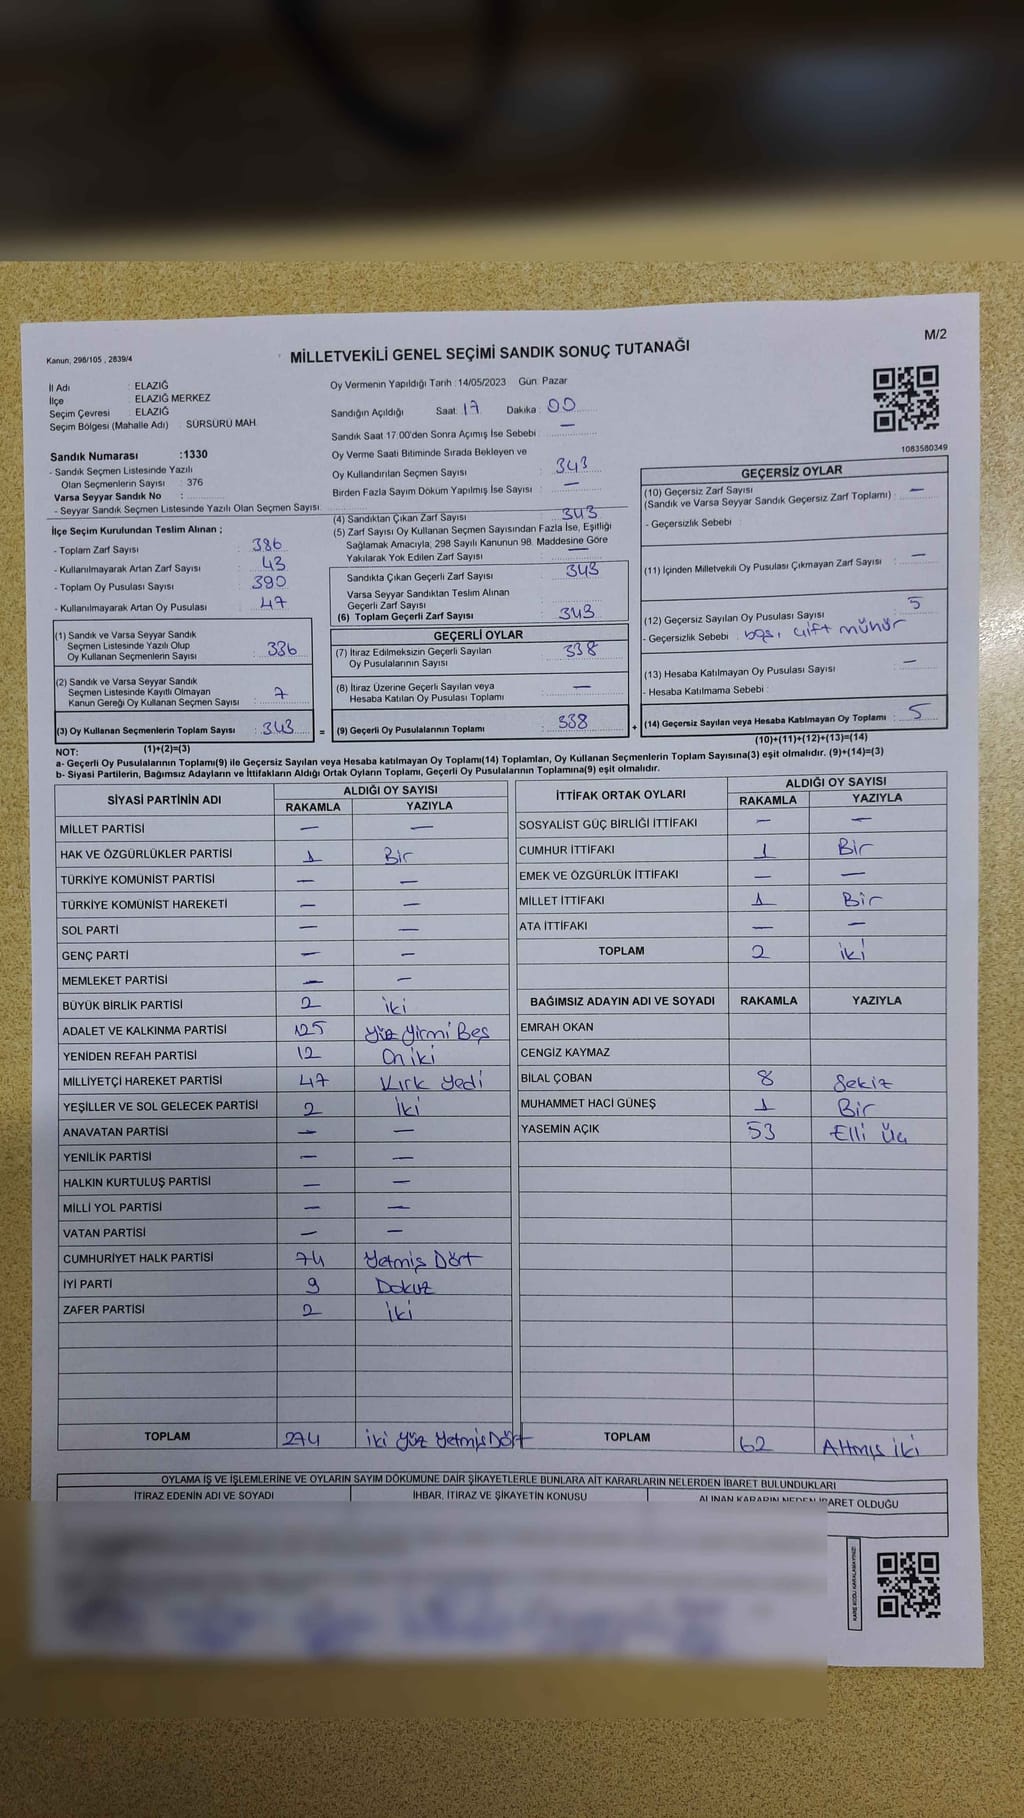 M/2
Kanun; 298/105 , 2839/4
MİLLETVEKİLİ GENEL SEÇİMİ SANDIK SONUÇ TUTANAĞI
İl Adı : ELAZIĞ
İlçe : ELAZIĞ MERKEZ
Seçim Çevresi : ELAZIĞ
Seçim Bölgesi (Mahalle Adı) : SÜRSÜRÜ MAH.
Sandık Numarası :1330
- Sandık Seçmen Listesinde Yazılı
Olan Seçmenlerin Sayısı : 376
Varsa Seyyar Sandık No :
- Seyyar Sandık Seçmen Listesinde Yazılı Olan Seçmen Sayısı
İlçe Seçim Kurulundan Teslim Alınan ;
- Toplam Zarf Sayısı : 386
- Kullanılmayarak Artan Zarf Sayısı : 43
- Toplam Oy Pusulası Sayısı : 390
- Kullanılmayarak Artan Oy Pusulası : 47
(1) Sandık ve Varsa Seyyar Sandık
Seçmen Listesinde Yazılı Olup
Oy Kullanan Seçmenlerin Sayısı : 336
(2) Sandık ve Varsa Seyyar Sandık
Seçmen Listesinde Kayıtlı Olmayan
Kanun Gereği Oy Kullanan Seçmen Sayısı : 7
(3) Oy Kullanan Seçmenlerin Toplam Sayısı : 343 =
(1)+(2)=(3)
Oy Vermenin Yapıldığı Tarih :14/05/2023 Gün: Pazar
Sandığın Açıldığı Saat: 17 Dakika : 00
Sandık Saat 17.00'den Sonra Açımış İse Sebebi : —
Oy Verme Saati Bitiminde Sırada Bekleyen ve
Oy Kullandırılan Seçmen Sayısı : 343
Birden Fazla Sayım Döküm Yapılmış İse Sayısı : —
(4) Sandıktan Çıkan Zarf Sayısı : 343
(5) Zarf Sayısı Oy Kullanan Seçmen Sayısından Fazla İse, Eşitliği
Sağlamak Amacıyla; 298 Sayılı Kanunun 98. Maddesine Göre
Yakılarak Yok Edilen Zarf Sayısı : —
Sandıkta Çıkan Geçerli Zarf Sayısı : 343
Varsa Seyyar Sandıktan Teslim Alınan
Geçerli Zarf Sayısı
(6) Toplam Geçerli Zarf Sayısı : 343
GEÇERLİ OYLAR
(7) İtiraz Edilmeksizin Geçerli Sayılan
Oy Pusulalarının Sayısı : 338
(8) İtiraz Üzerine Geçerli Sayılan veya
Hesaba Katılan Oy Pusulası Toplamı : —
(9) Geçerli Oy Pusulalarının Toplamı : 338 +
1083580349
GEÇERSİZ OYLAR
(10) Geçersiz Zarf Sayısı
(Sandık ve Varsa Seyyar Sandık Geçersiz Zarf Toplamı) : —
- Geçersizlik Sebebi :
(11) İçinden Milletvekili Oy Pusulası Çıkmayan Zarf Sayısı : —
(12) Geçersiz Sayılan Oy Pusulası Sayısı : 5
- Geçersizlik Sebebi : boş, çift mühür
(13) Hesaba Katılmayan Oy Pusulası Sayısı : —
- Hesaba Katılmama Sebebi :
(14) Geçersiz Sayılan veya Hesaba Katılmayan Oy Toplamı : 5
(10)+(11)+(12)+(13)=(14)
NOT:
a- Geçerli Oy Pusulalarının Toplamı(9) ile Geçersiz Sayılan veya Hesaba katılmayan Oy Toplamı(14) Toplamları, Oy Kullanan Seçmenlerin Toplam Sayısına(3) eşit olmalıdır. (9)+(14)=(3)
b- Siyasi Partilerin, Bağımsız Adayların ve İttifakların Aldığı Ortak Oyların Toplamı, Geçerli Oy Pusulalarının Toplamına(9) eşit olmalıdır.
SİYASİ PARTİNİN ADI ALDIĞI OY SAYISI
RAKAMLA YAZIYLA
MİLLET PARTİSİ — —
HAK VE ÖZGÜRLÜKLER PARTİSİ 1 Bir
TÜRKİYE KOMÜNİST PARTİSİ — —
TÜRKİYE KOMÜNİST HAREKETİ — —
SOL PARTİ — —
GENÇ PARTİ — —
MEMLEKET PARTİSİ — —
BÜYÜK BİRLİK PARTİSİ 2 iki
ADALET VE KALKINMA PARTİSİ 125 Yüz Yirmi Beş
YENİDEN REFAH PARTİSİ 12 On iki
MİLLİYETÇİ HAREKET PARTİSİ 47 Kırk Yedi
YEŞİLLER VE SOL GELECEK PARTİSİ 2 İki
ANAVATAN PARTİSİ — —
YENİLİK PARTİSİ — —
HALKIN KURTULUŞ PARTİSİ — —
MİLLİ YOL PARTİSİ — —
VATAN PARTİSİ — —
CUMHURİYET HALK PARTİSİ 74 Yetmiş Dört
İYİ PARTİ 9 Dokuz
ZAFER PARTİSİ 2 iki
TOPLAM 274 iki Yüz Yetmiş Dört
İTTİFAK ORTAK OYLARI ALDIĞI OY SAYISI
RAKAMLA YAZIYLA
SOSYALİST GÜÇ BİRLİĞİ İTTİFAKI — —
CUMHUR İTTİFAKI 1 Bir
EMEK VE ÖZGÜRLÜK İTTİFAKI — —
MİLLET İTTİFAKI 1 Bir
ATA İTTİFAKI — —
TOPLAM 2 iki
BAĞIMSIZ ADAYIN ADI VE SOYADI RAKAMLA YAZIYLA
EMRAH OKAN
CENGİZ KAYMAZ
BİLAL ÇOBAN 8 Sekiz
MUHAMMET HACİ GÜNEŞ 1 Bir
YASEMİN AÇIK 53 Elli Üç
TOPLAM 62 Altmış iki
OYLAMA İŞ VE İŞLEMLERİNE VE OYLARIN SAYIM DÖKÜMÜNE DAİR ŞİKAYETLERLE BUNLARA AİT KARARLARIN NELERDEN İBARET BULUNDUKLARI
İTİRAZ EDENİN ADI VE SOYADI İHBAR, İTİRAZ VE ŞİKAYETİN KONUSU ALINAN KARARIN NEDEN İBARET OLDUĞU
KARE KODU KARALAMAYINIZ!